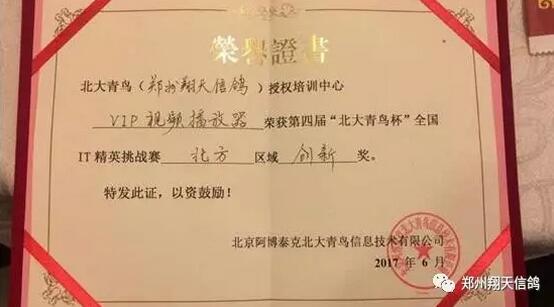 榮譽證書
北大青鸟（郑州翔天信鸽）授权培训中心
VIP视频播放器荣获第四届“北大青鸟杯”全国
IT精英挑战赛 北方 区域 创新 奖。
特发此证，以资鼓励！
北京阿博泰克北大青鸟信息技术有限公司
2017 年 6 月
郑州翔天信鸽